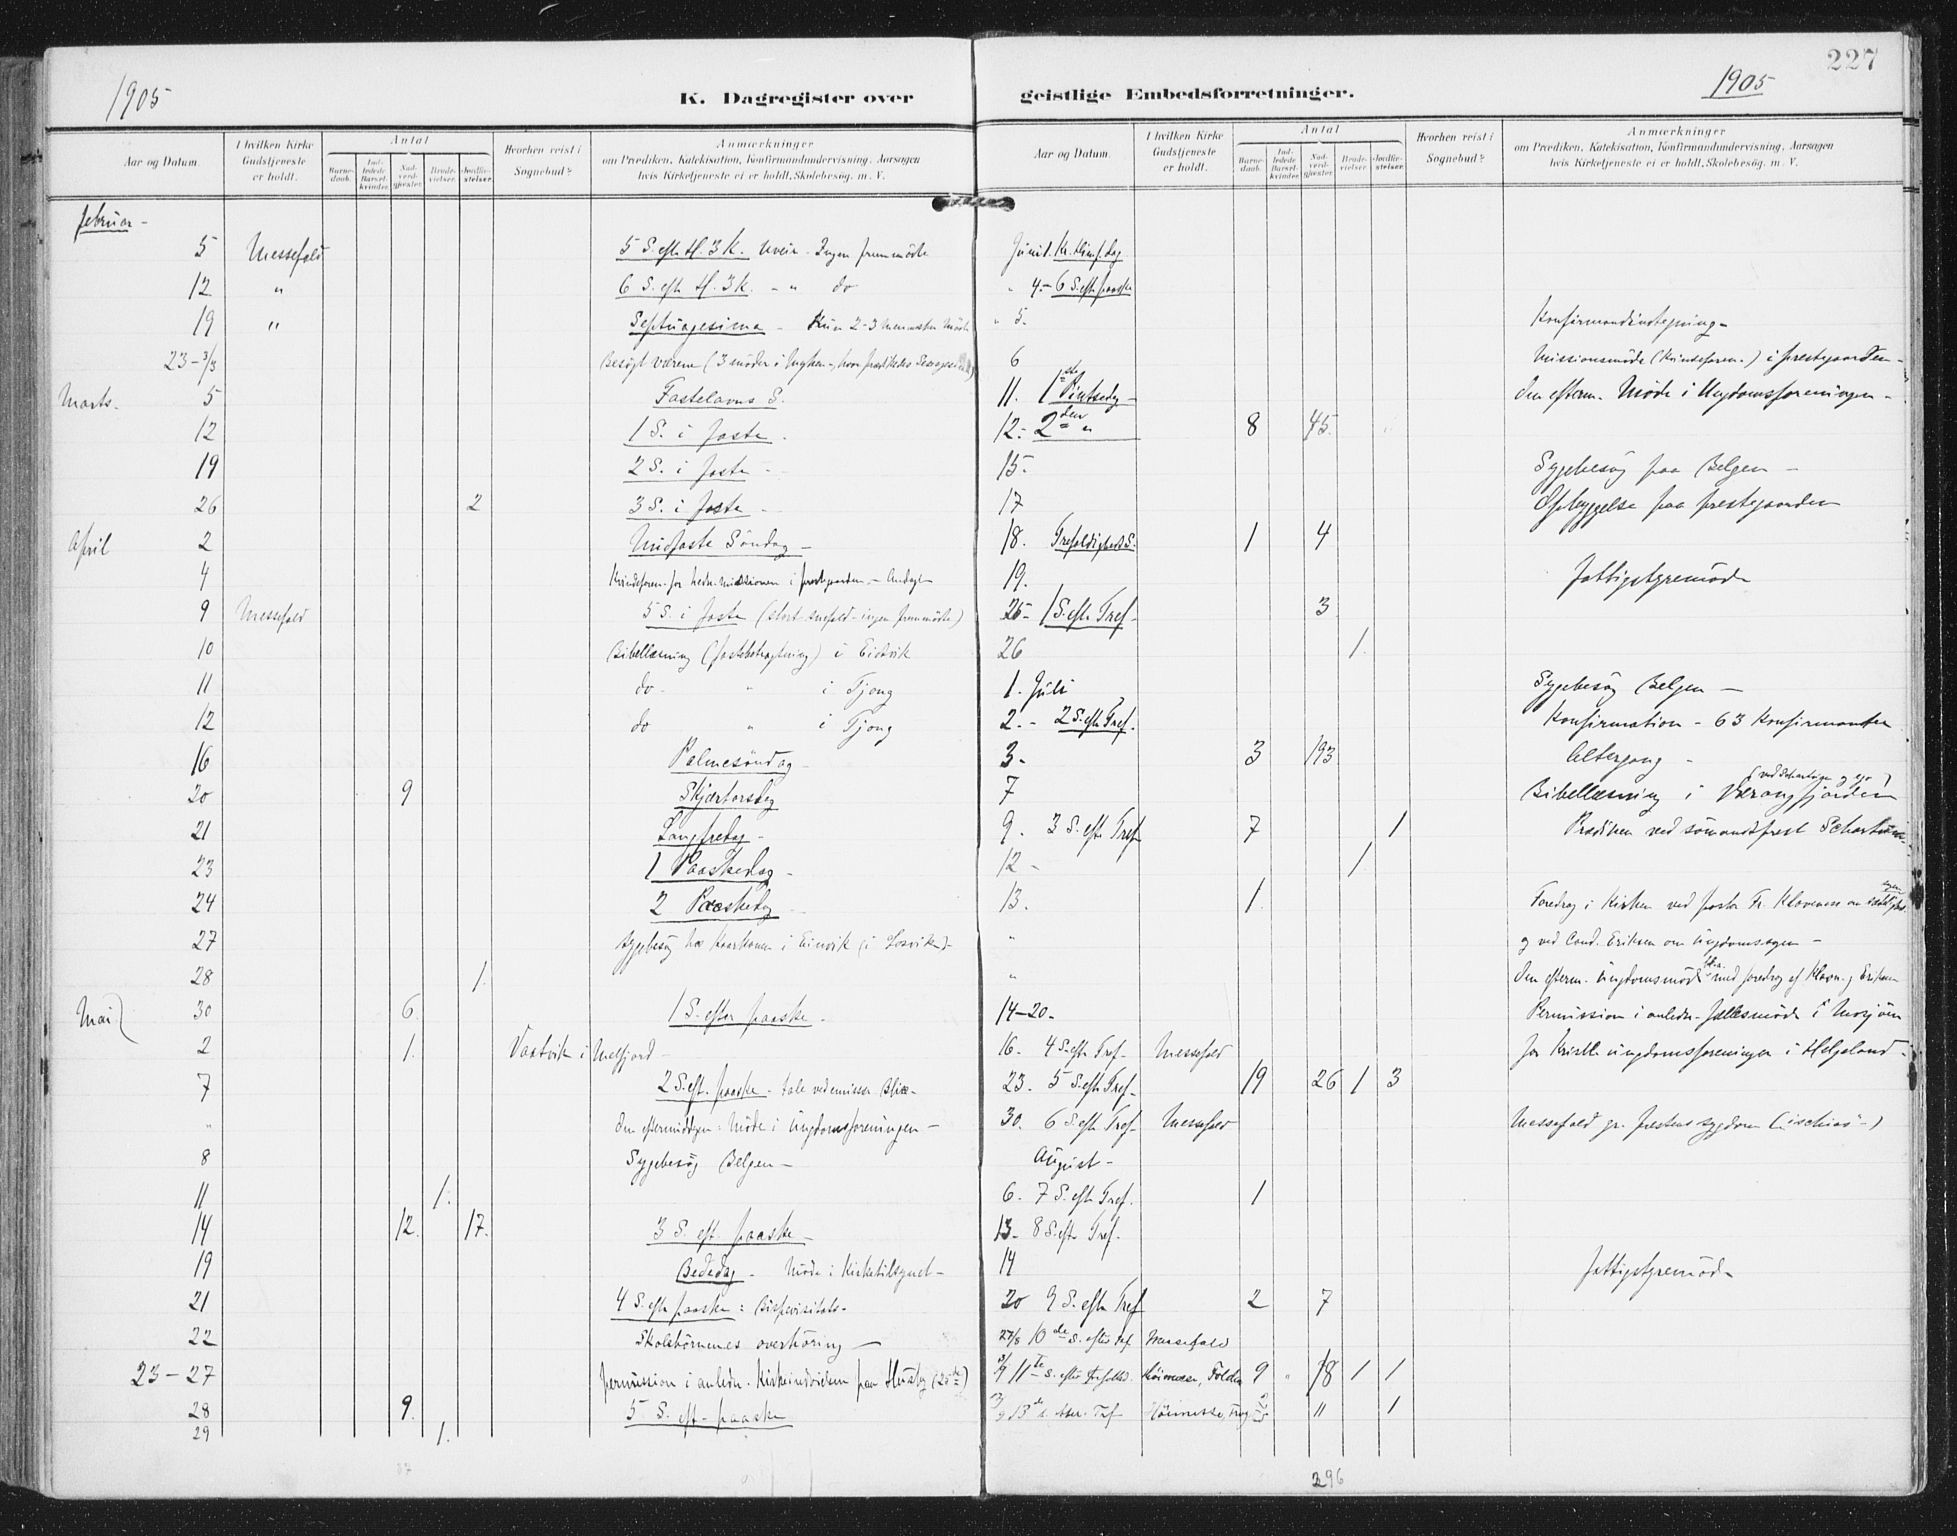 1905
K. Dagregister over
Aar og Datum.
I hvilken Kirke Gudstjeneste er holdt.
Antal
Barne-daab.
Ind-ledede Barsel-kvinder.
Nad-verd-gjester.
Brude-vielser.
Jordfæ-stelser.
Hvorhen reist i Sognebud?
Anmærkninger
om Prædiken, Katekisation, Konfirmandundervisning, Aarsagen
hvis Kirketjeneste ei er holdt, Skolebesøg, m. V.
Februar -
5 Messefald 5 S. eft. H. 3 K. Uveir - Ingen fremmødte
12 " 6 S. eft. H. 3 K. - " do
19 " Septuagesima - Kun 2-3 mennesker mødte
23 - 3/3 Besøgt værene (3 møder i Myken -
Marts. 5 Fastelavns S.
12 1 S. i faste.
19 2 S. i faste -
26 2 3 S. i faste -
April 2 Midfaste Søndag -
4 Kvindeforen. for hedn. missionen i prestgaarden - Andagt
9 Messefald 5 S. i faste (stort snefald - ingen fremmødte)
10 Bibellæsning (fastebetragtning) i Eidvik
11 do - " i Tjong
12 do " i Tjong
16 Palmesøndag -
20 9 Skjærtorsdag
21 Langfredag -
23 1 Paaskedag -
24 2 Paaskedag -
27 Sygebesøg hos
28 1.
30 6. 1 S. efter paaske.
Mai
2 1. Vastvik i Melfjord -
7 2 S. eft. paaske -
" Den eftermiddagen: Møde i Ungdomsforeningen -
8 Sygebesøg Belgen -
11 1.
14 12. 17. 3 S. eft. paaske -
19 Bededag - Møde i Kirketilsynet -
21 4 S. eft. paaske: Bispevisitats -
22 Skolebørnenes overhøring -
23 - 27 Permission i anledn. Kirkeindvielsen paa Husby (25de)
28 9. 5 S. eft. paaske
29 1.
227
1905
geistlige Embedsforretninger.
Aar og Datum.
I hvilken Kirke Gudstjeneste er holdt.
Antal
Barne-daab.
Ind-ledede Barsel-kvinder.
Nad-verd-gjester.
Brude-vielser.
Jordfæ-stelser.
Hvorhen reist i Sognebud?
Anmærkninger
om Prædiken, Katekisation, Konfirmandundervisning, Aarsagen
hvis Kirketjeneste ei er holdt, Skolebesøg, m. V.
Juni 1. Kr. Himf. dag
" 4. - 6 S. eft. paaske
" 5. Konfirmandindtegning -
6 Missionsmøde (Kvindeforen.) i prestegaarden -
11. 1ste Pintsedag - Den efterm. Møde i Ungdomsforeningen -
12. - 2den " 8 45.
15. Sygebesøg paa Belgen -
17 Opbyggelse paa prestegaarden
18. Trefoldigheds S. 1 4
19. Fattigstyremøde
25 - 1 S. eft. Tref. 3
26 1.
1. Juli Sygebesøg Belgen -
2. - 2 S. eft. Tref. Konfirmation - 63 Konfirmanter
3 - 3 193 Altergang -
7 Bibellæsning i Værangfjorden
9. 3 S. eft. Tref. 7 1 Prædiken ved sømandsprest
12 - 1
13. 1. Foredrag i Kirken ved pastor Fr. Klaveness om
" og ved Cand. Eriksen om Ungdomssagen -
" Den efterm. Ungdomsmøde med foredrag af Klavn. og Eriksen
14 - 20 - Permission i anledn. Fællesmøde i Mosjøen
16. 4 S. eft. Tref - Messefald for Kristl. ungdomsforeninger i Helgeland -
23. 5 S. eft. Tref - 19 26 1 3
30. 6 S. eft. Tref - Messefald Messefald gr. prestens sygdom ("ischias" -)
August -
6. 7 S. eft. Tref. 1
13. 8 S. eft. Tref.
14 Fattigstyremøde
20 9 S. eft. Tref 2 7
27/8 10de S. efter Tref. Messefald
3/9 11te S. efter Trefoldh. Høimesse, 9 " 18 1 1
13de s. Høimesse, 11 1
296